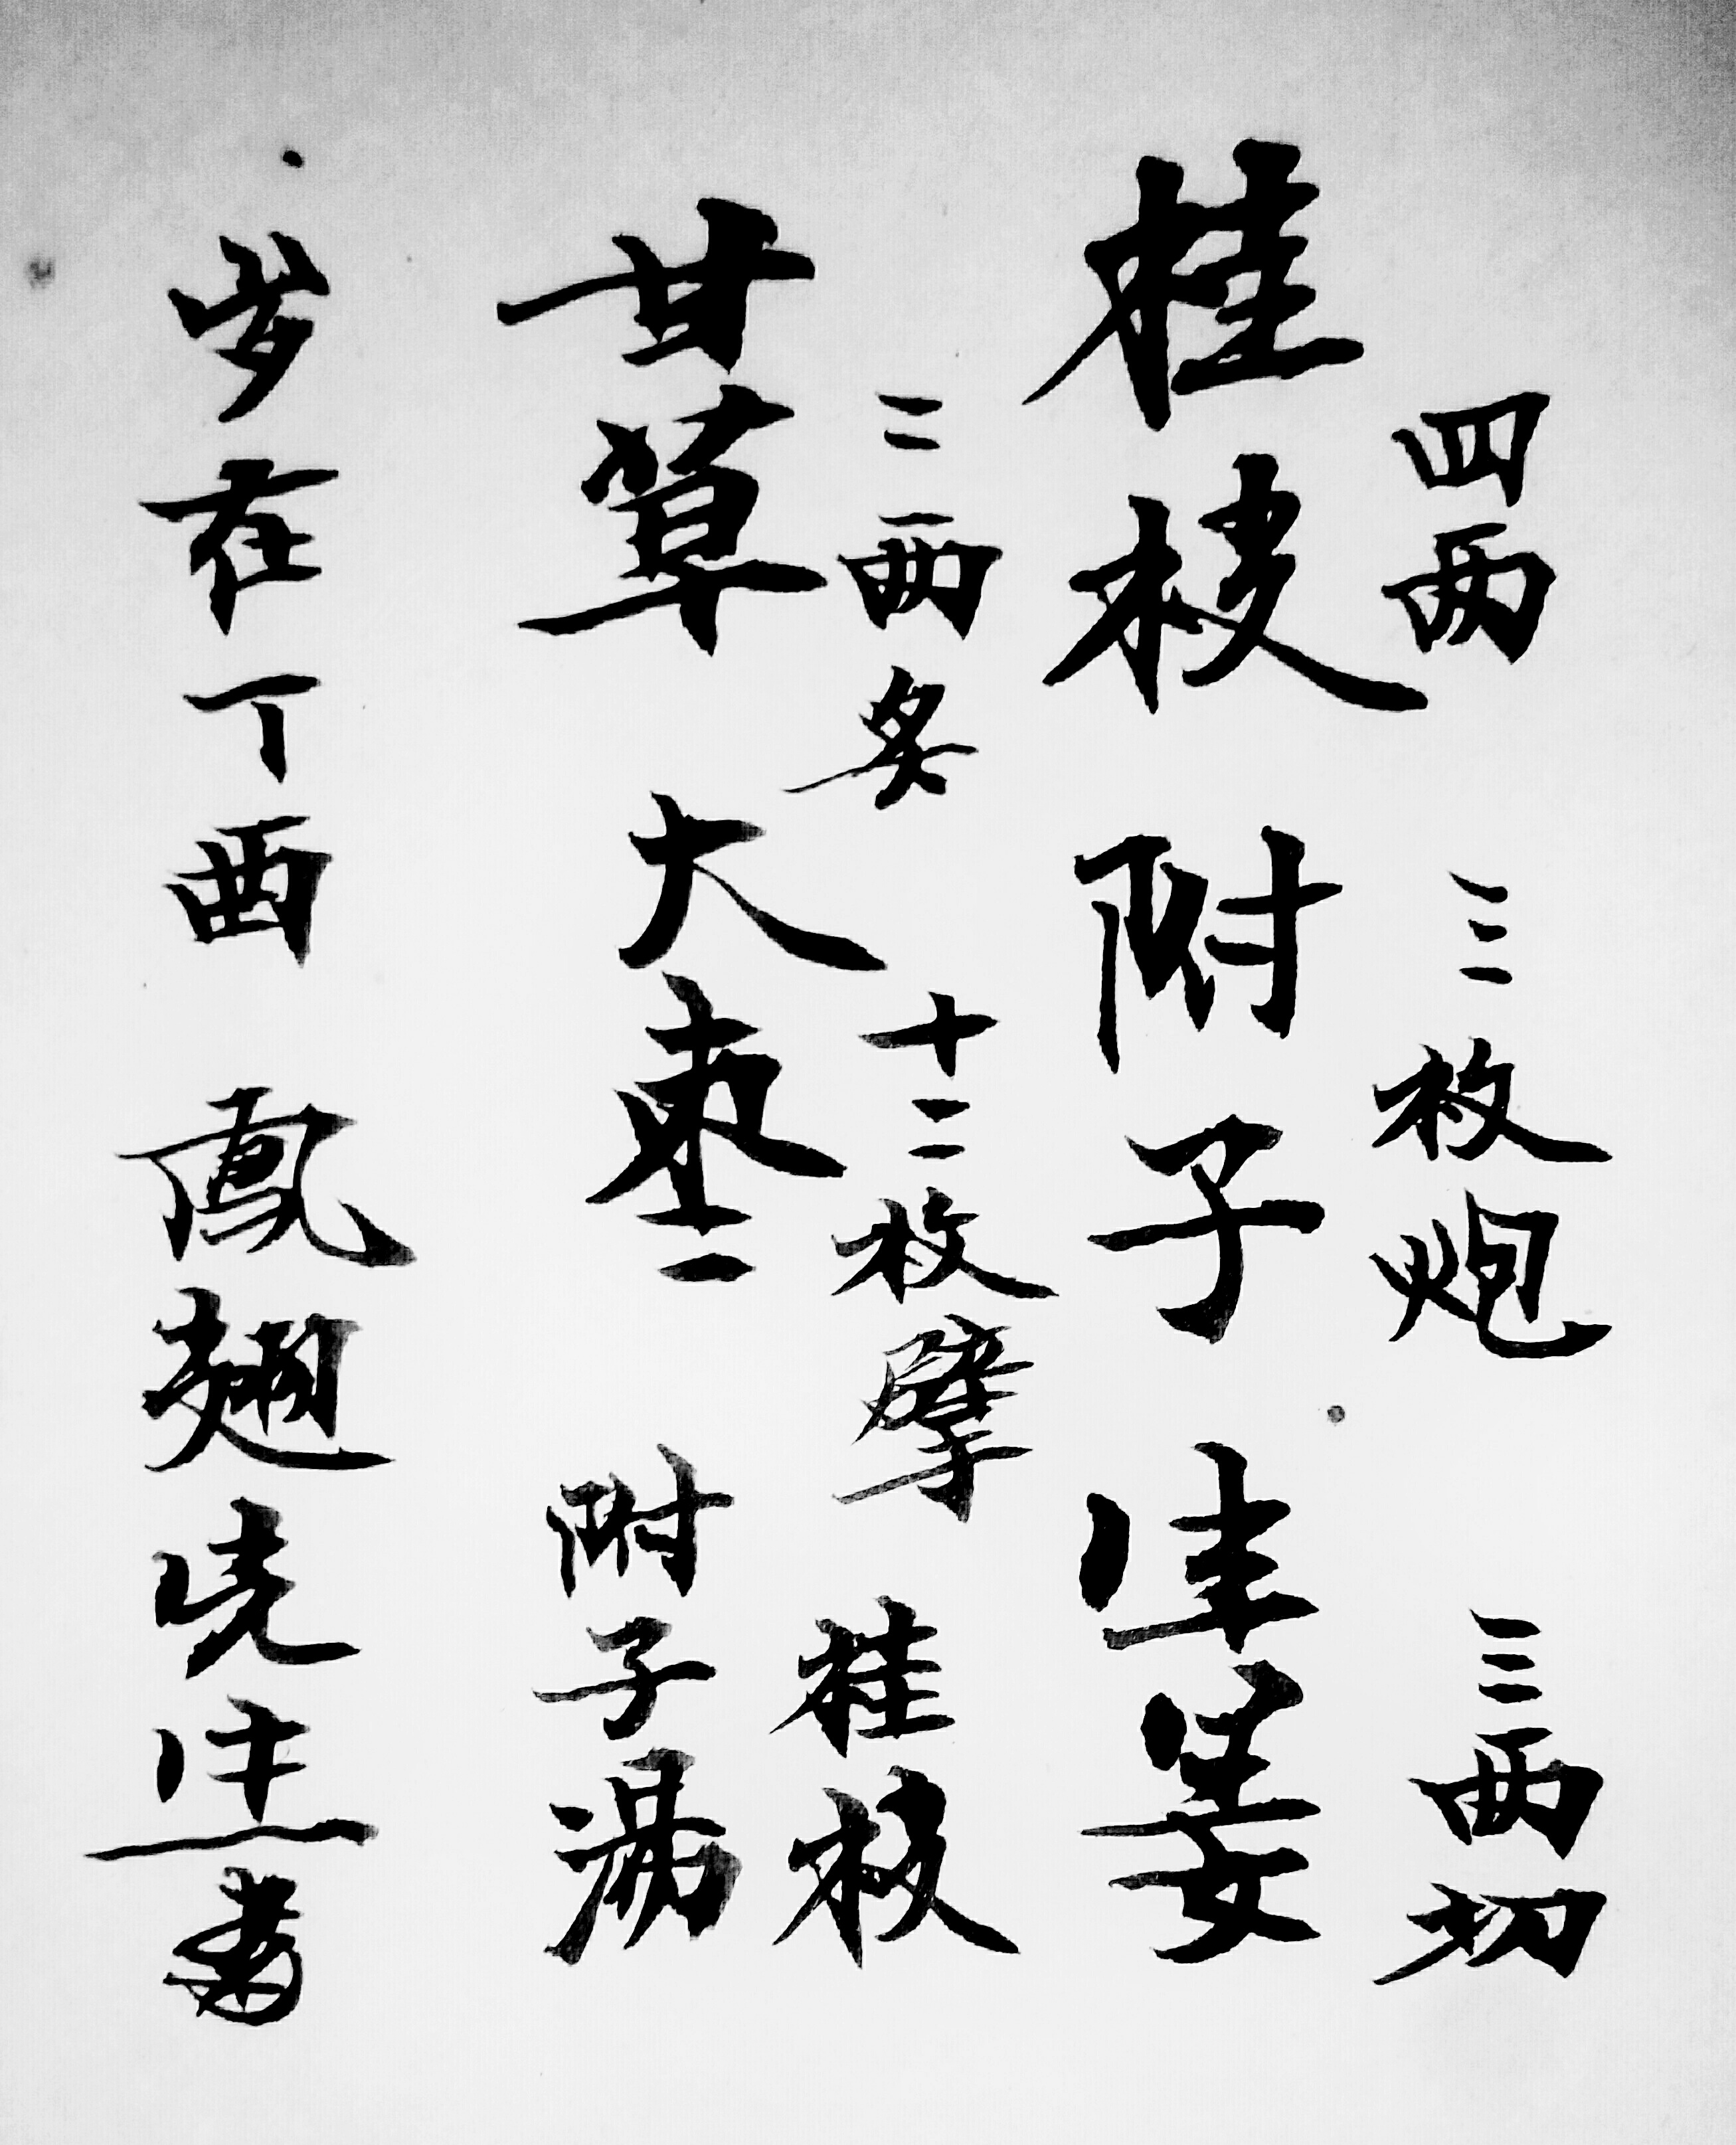 四两 三枚炮 三两切
桂枝 附子 生姜
二两炙 十二枚擘 桂枝
甘草 大枣 附子湯
岁在丁酉 鳳翅先生書